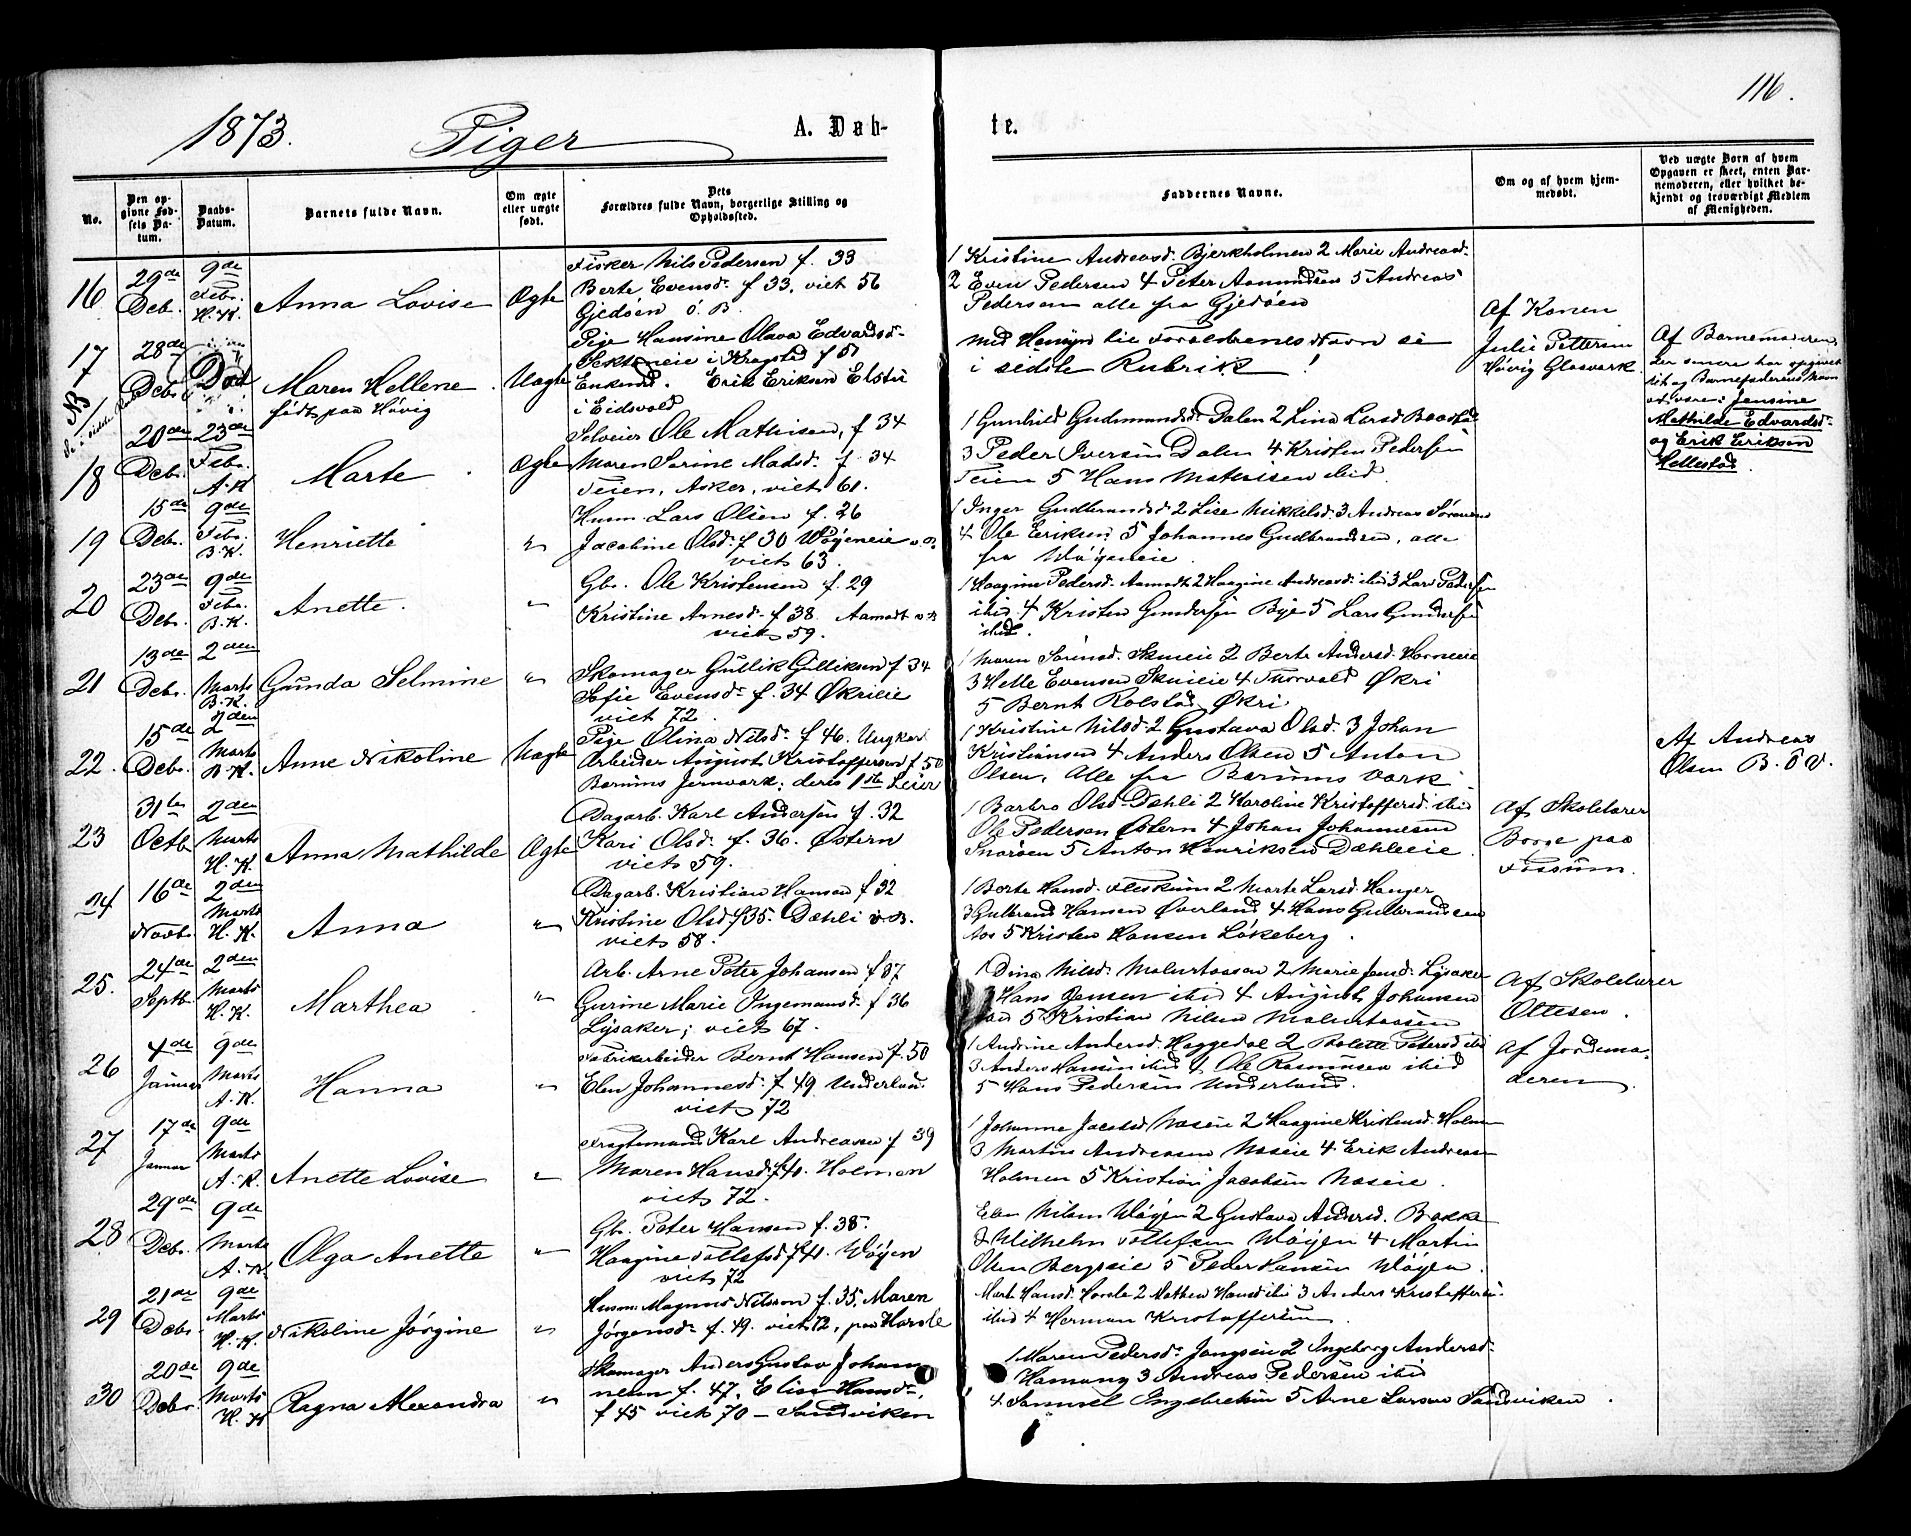 116.
1873. Piger A. Døb-
te.
No.
Den opgivne Fødsels Datum.
Daabs-Datum.
Barnets fulde Navn.
Om ægte eller uægte født.
Dets Forældres fulde Navn, borgerlige Stilling og Opholdssted.
Faddernes Navne.
Om og af hvem hjemmedøbt.
Ved uægte Børn af hvem Opgaven er skeet, enten Barnemoderen, eller hvilket bekjendt og troværdigt Medlem af Menigheden.
16 29de Debr. 9de Febr. H. K. Anna Lovise Ægte
Fisker Nils Pedersen f. 33
Berte Evensd. f 33, viet 56
Gjedøen Ø. B.
1 Kristine Andreasd. Bjerkholmen 2 Marie Andreasd.
2 Even Pedersen 4 Peter Aamundsen 5 Andreas
Pedersen alle fra Gjedøen
17 28de Debr. Død Maren Hellene Uægte
født paa Høvig
Pige Hansine Olava Edvardsd.
i Kragstad f 51
Enkemd. Erik Eriksen
i Eidsvold
med Hensyn til Forældrenes Navn se
i sidste Rubrik!
Af Konen
Julie Pettersen
Høvig Glasværk
Af Barnemoderen,
der senere har opgivet
sit og Barnefaderens Navn
at være: Jensine
Mathilde Edvardsd.
og Erik Eriksen
Hellestad.
NB
18 20de Debr. 23de Febr. A. K Marte Ægte
Selveier Ole Mathisen, f 34
Maren Sorine Madsd. f. 34
Teien, Asker, viet 61.
1 Gunhild Gudmundsd. Dalen 2 Lina Larsd
3 Peder Iversen Dalen 4 Kristen Pedersen
Teien 5 Hans Mathisen ibid.
19 15de Debr. 9de Febr. B. K. Henriette "
Husm. Lars Olsen f. 26
Jacobine Olsd. f 30 Wøyeneie v. B.
viet 63.
1 Inger Gudbrandsd 2 Lise Mikkelsd. 3 Andreas Sørensen
4 Ole Eriksen 5 Johannes Gudbrandsen, alle
fra Wøyeneie
20 23de Debr. 9de Febr. B. K. Anette. "
Gbr. Ole Kristensen f. 29
Kristine Arnesd. f 38 Aamodt v. B
viet 59.
1 Haagine Pedersd. Aamodt 2 Haagine Andreasd. ibid 3 Lars Pedersen
ibid. 4 Kristen Gundersen Bye 5 Lars Gundersen
ibid.
21 13de Debr. 2den Marts B. K. Gunda Selmine "
Skomager Gullik Gulliksen f 34
Sofie Evensd. f. 34 Økrieie
viet 72.
1 Maren Sørensd. Skuieie 2 Berte Andersd. Horneeie
3 Helle Evensen Skuieie 4 Thorvald Økri
5 Bernt Rolstad Økri
22. 15de Debr. 2den Marts B. K. Anne Nikoline Uægte
Pige Olina Nilsd. f 46. Ungkar.
Arbeider August Kristoffersen f 50
Bærums Jernværk; deres 1ste Leier
1 Kristine Nilsd. 2 Gustava Olsd. 3 Johan
Kristiansen 4 Anders Olsen 5 Anton
Olsen, Alle fra Bærums Værk
Af Andreas
Olsen B. V.
23 31te Octb 2den Marts H. K. Anna Mathilde Ægte
Dagarb. Karl Andersen f. 32
Kari Olsd. f. 36. Østern
viet 59.
1 Barbro Olsd. Dæhli 2 Karoline Kristoffersd. ibid
Ole Pedersen Østern 4 Johan Johannesen
Snarøen 5 Anton Henriksen Dæhlieie
Af Skolelærer
Borge paa
Fossum.
24 16de Novbr. 2den Marts H. K. Anna "
Dagarb. Kristian Hansen f 32
Kristine Olsd. f 35. Dæhli v. B.
viet 58.
1 Berte Hansd. Fleskum 2 Marte Larsd. Hauger
3 Gulbrand Hansen Øverland 4 Hans Gulbrandsen
5 Kristen Hansen Løkeberg.
25. 24de Septb. 2den Marts H. K. Marthea "
Arb. Arne Peter Johansen f 37
Gurine Marie Ingemansd. f 36
Lysaker; viet 67.
1 Dina Nilsd. Malurtaasen 2 Marie Jensd. Lysaker
Hans Jensen ibid 4 August Johansen
5 Kristian Nilsen Malurtaasen
Af Skolelærer
Ottesen.
26 4de Januar 9de Marts A. K. Hanna "
Fabrikarbeider Bernt Hansen f. 50
Elen Johannesd. f 49 Underlan.
viet 72
1 Andrine Andersd. Haggedal 2 Bolette Petersd ibid
3 Anders Hansen ibid 4 Ole Rasmussen ibid
5 Hans Pedersen Underland.
Af Jordemo-
deren.
27 17de Januar 9de Marts A. K. Anette Lovise "
Fragtemand Karl Andreassen f 39
Maren Hansd. f 40. Holmen
viet 72.
1 Johanne Jacobsd Næseie 2 Haagine Kristensd. Holmen
3 Martin Andreasen Næseie 4 Erik Andreasen
Holmen 5 Kristian Jacobsen Næseie.
28 29de Debr. 9de Marts A. K. Olga Anette "
Gbr. Peter Hansen f. 38.
Haagine Tollefsd f 41. Wøyen
viet 72
Elen Nilsen Wøyen 2 Gustava Andersd. Bakke
3 Wilhelm Tollefsen Wøyen 4 Martin
Olsen Bergseie 5 Peder Hansen Wøyen.
29 21de Debr. 9de Marts H. K. Nikoline Jørgine "
Husm. Magnus Nilsson f. 35, Maren
Jørgensd. f. 49. viet 72, paa Horsle
Marte Hansd. Horsle 2 Mathea Hansd ibid 3 Anders Kristoffersen
ibid 4 Herman Kristoffersen.
30 20de Debr 9de Marts H. K Ragna Alexandra "
Skomager Anders Gustav Johan
nesen f. 47, Elise Hansd.
f 45 viet 70 — Sandviken
1 Maren Pedersd. Jongseie 2 Ingeborg Andersd.
Hamang 3 Andreas Pedersen ibid
4 Samuel Ingebretsen 5 Arne Larsen Sandviken.